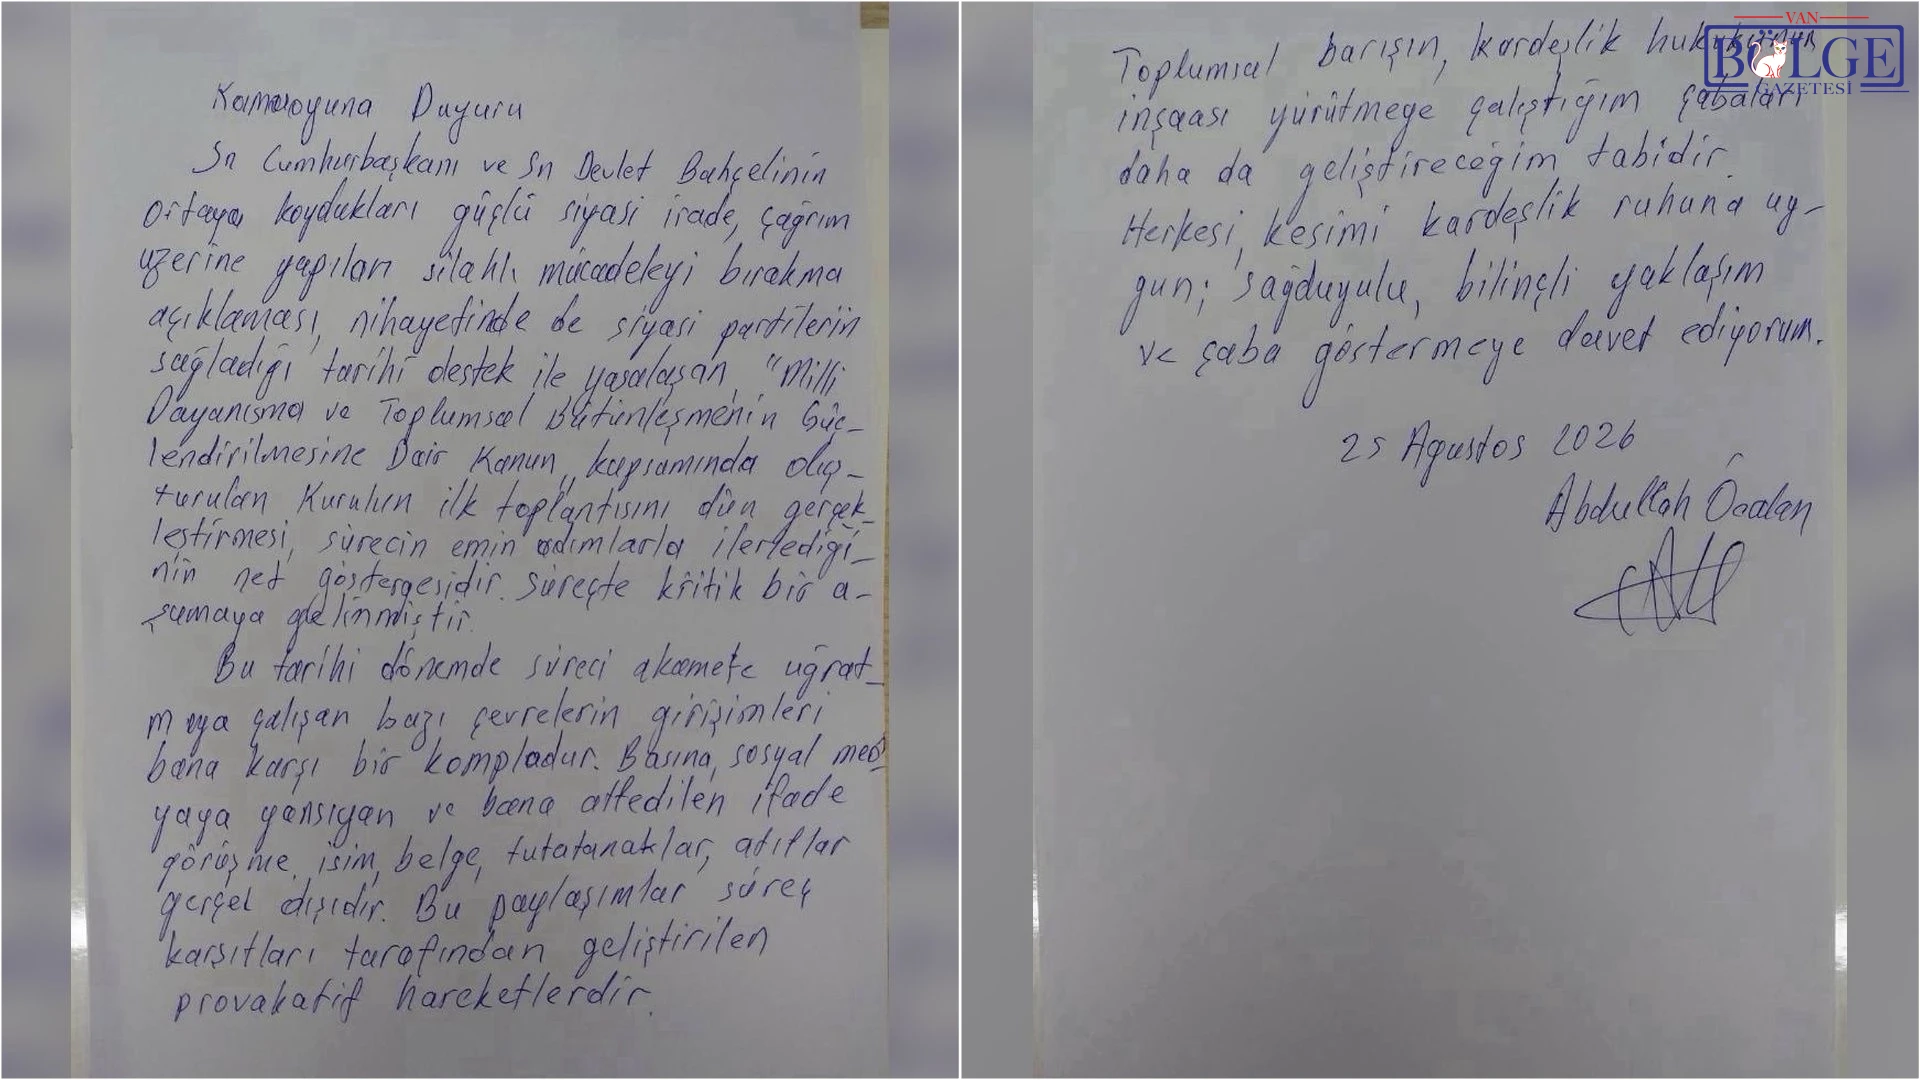 Kamuoyuna Duyuru
Sn Cumhurbaşkanı ve Sn Devlet Bahçelinin
Ortaya koydukları güçlü siyasi irade, çağrım
üzerine yapılan silahlı mücadeleyi bırakma
açıklaması, nihayetinde de siyasi partilerin
sağladığı tarihi destek ile yasalaşan, "Milli
Dayanışma ve Toplumsal Bütünleşme'nin Güç-
lendirilmesine Dair Kanun" kapsamında oluş-
turulan Kurulun ilk toplantısını dün gerçek-
leştirmesi, sürecin emin adımlarla ilerlediği-
nin net göstergesidir. Süreçte kritik bir a-
şamaya gelinmiştir.
Bu tarihi dönemde süreci akamete uğrat-
maya çalışan bazı çevrelerin girişimleri
bana karşı bir kompladur. Basına, sosyal med-
yaya yansıyan ve bana atfedilen ifade
görüşme, isim, belge, tutatanaklar, atıflar
gerçek dışıdır. Bu paylaşımlar süreç
karşıtları tarafından geliştirilen
provakatif hareketlerdir.
Toplumsal barışın, kardeşlik hukukunun
inşaası yürütmeye çalıştığım çabaları
daha da geliştireceğim tabidir.
Herkesi, kesimi kardeşlik ruhuna uy-
gun; sağduyulu, bilinçli yaklaşım
ve çaba göstermeye davet ediyorum.
25 Agustos 2026
Abdullah Öcalan
VAN
BÖLGE
GAZETESİ